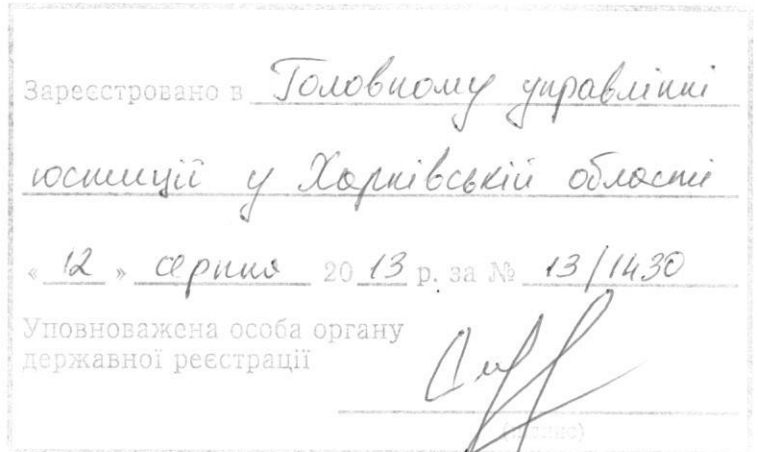 Зареєстровано в Головному управлінні
юстиції у Харківській області
« 12 » серпня 20 13 р. за № 13/1430
Уповноважена особа органу
державної реєстрації
(підпис)